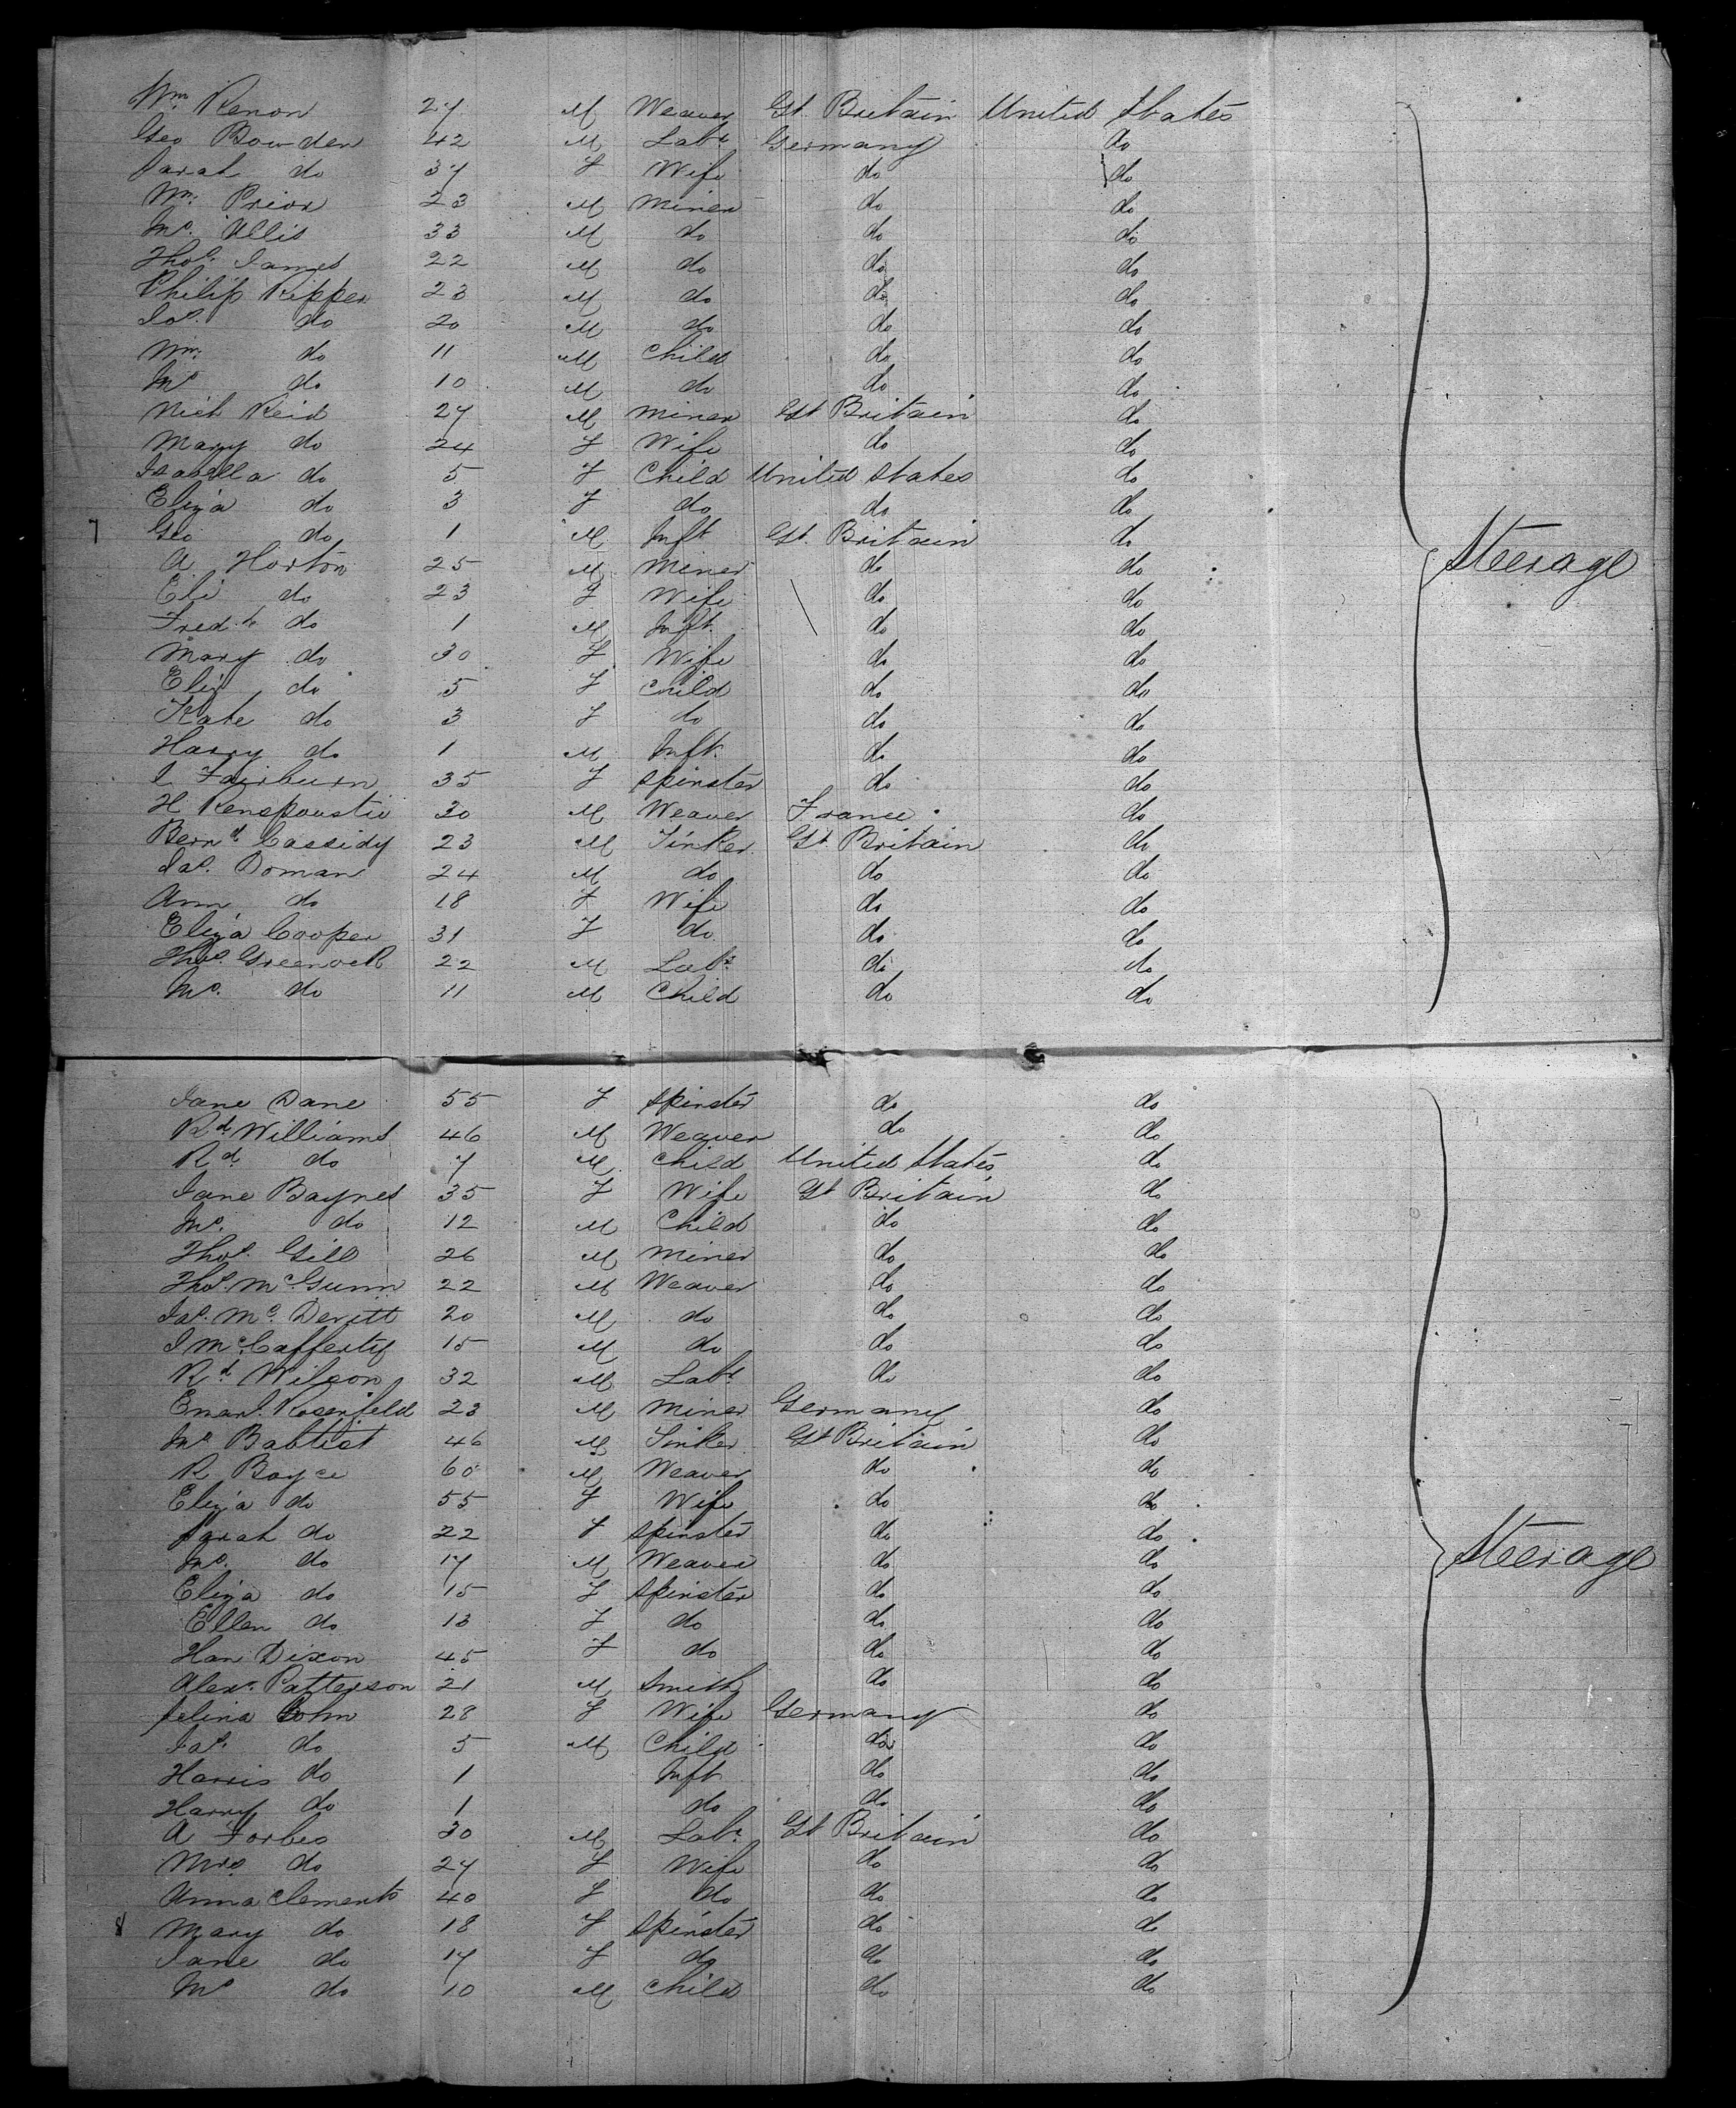 Wm. Renon 27 M Weaver Gt. Britain United States
Geo Bowden 42 M Labr Germany do
Sarah do 37 F Wife do do
Wm. Prior 23 M Miner do do
Jno. Ellis 33 M do do do
Thos. James 22 M do do do
Philip Kipper 23 M do do do
Jas. do 20 M do do do
Wm. do 11 M Child do do
Jno do 10 M do do do
Nich Reid 27 M Miner Gt Britain do
Mary do 24 F Wife do do
Isabella do 5 F Child United States do
Eliza do 3 F do do do
7 Geo do 1 M Inft Gt. Britain do
Steerage
A Horton 25 M Miner do do
Eli do 23 F Wife do do
Fredk do 1 M Inft. do do
Mary do 30 F Wife do do
Eliz do 5 F Child do do
Kate do 3 F do do do
Harry do 1 M Inft. do do
J Fairburn 35 F Spinster do do
H 30 M Weaver France do
Bernd. Cassidy 23 M Tinker Gt. Britain do
Jas. Doman 24 M do do do
Ann do 18 F Wife do do
Eliza Cooper 31 F do do do
Thos. Greenock 22 M Labr. do do
Jno. do 11 M Child do do
Jane Dane 55 F Spinster do do
Rd. Williams 46 M Weaver do do
Rd. do 7 M Child United States do
Jane Baynes 35 F Wife Gt Britain do
Jno. do 12 M Child do do
Thos. Gill 26 M Miner do do
Thos. McGunn 22 M Weaver do do
Jas. Mc. Devitt 20 M do do do
J McCafferty 15 M do do do
Rd. Wilson 32 M Labr do do
Emanl. Rosenfeld 23 M Miner Germany do
Jno Babtist 46 M Tinker Gt Britain do
R Boyce 60 M Weaver do do
Eliza do 55 F Wife do do
Sarah do 22 F Spinster do do
Jno. do 17 M Weaver do do
Steerage
Eliza do 15 F Spinster do do
Ellen do 13 F do do do
Han Dixon 45 F do do do
Alexr. Patterson 21 M Smith do do
Selina Cohn 28 F Wife Germany do
Jas. do 5 M Child do do
Harris do 1 Inft do do
Harry do 1 do do do
A Forbes 30 M Labr. Gt Britain do
Mrs. do 27 F Wife do do
Anna Clements 40 F do do do
8 Mary do 18 F Spinster do do
Jane do 17 F do do do
Jno do 10 M Child do do